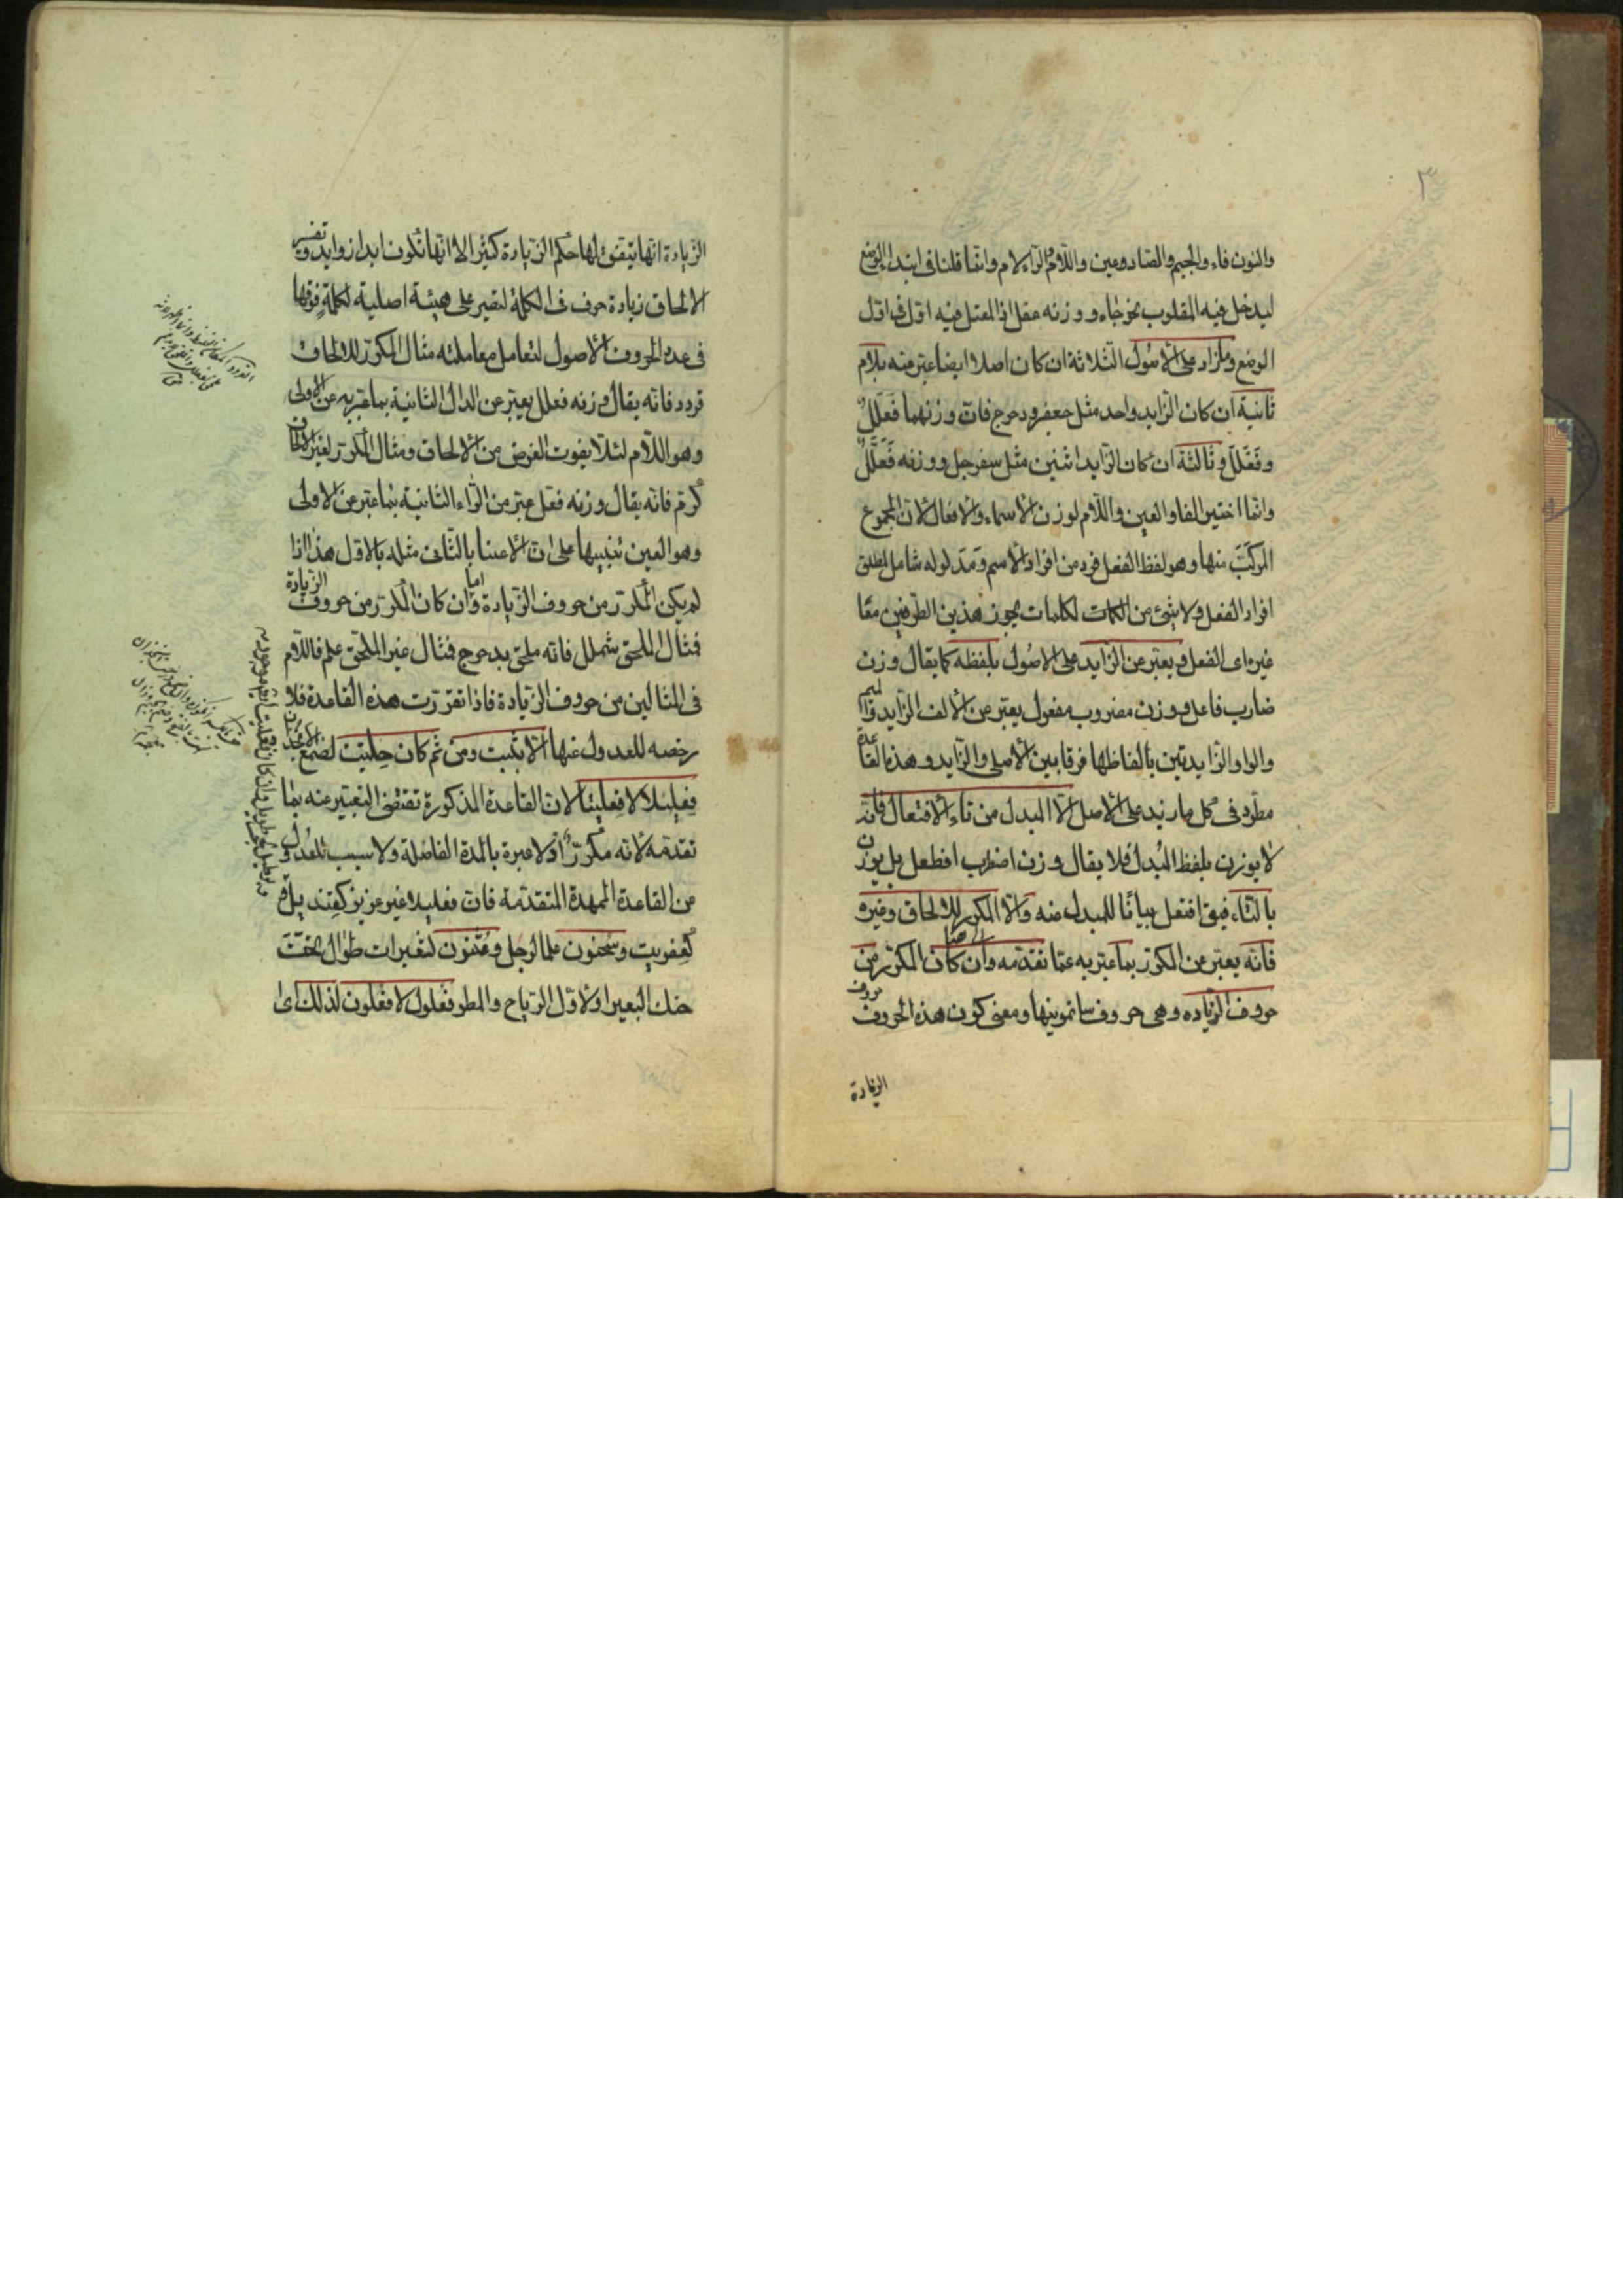 ٣
والنون فاء والجيم والضاد وعين واللام والراء لام وانما قلنا فى ابتداء الوضع
ليدخل فيه المقلوب نحو جاء ووزنه عفل اذ المعتل فيه اول فى اول
الوضع وما زاد على الاصول الثلاثة ان كان اصلا ايضا عبر منه بلام
ثانية ان كان الزايد واحد مثل جعفر ودحرج فان وزنهما فَعْلَلٌ
وفَعْلَلَ وثالثة ان كان الزايد اثنين مثل سفرجل ووزنه فَعَلَّلٌ
وانما اختير الفا والعين واللام لوزن الاسماء والافعال لان المجموع
المركّب منها وهو لفظ الفعل فرد من افراد الاسم ومدلوله شامل لمطلق
افراد الفعل ولا شئ من الكلمات يجوز هذين الطرفين معًا
غيره اى الفعل ويعبّر عن الزايد على الاصول بلفظه كما يقال وزن
ضارب فاعل ووزن مضروب مفعول يعبّر عن الالف الزايد والميم
والواو الزايدتين بالفاظها فرقا بين الاصلى والزايد وهذه القاعدة
مطّرد فى كل ما زيد على الاصل الّا المبدل من تاء الافتعال فانّه
لا يوزن بلفظ المُبدل فلا يقال وزن اضطرب افطعل بل يوزن
بالتاء فيق افتعل بيانًا للمبدل منه والّا المكرر للالحاق وغيره
فانّه يعبّر عن المكرر بما عبّر به عمّا تقدّمه وان كان المكرّر من
حروف الزيادة وهى حروف سألتمونيها ومعنى كون هذه الحروف حروف
الزيادة
الزيادة انها يتفق لها حكم الزيادة كثيرا لا انها تكون ابدا زوايد وتفسير
الالحاق زيادة حرف فى الكلمة لتصير على هيئة اصلية لكلمة فوقها
فى عدد الحروف الاصول لتعامل معاملته مثال المكرّر للالحاق
قردد فانّه يقال وزنه فعلل يعبّر عن الدال الثانية بما عبّر به عن الاولى
وهو اللّام لئلّا يفوت الغرض من الالحاق ومثال المكرّر لغير الالحاق
كرّم فانّه يقال وزنه فعّل عبّر من الرّاء الثانية بما عبّر عن الاولى
وهو العين تنبيها على ان الاعتناء بالثانى مثله بالاول هذا اذا
لم يكن المكرّر من حروف الزيادة وامّا ان كان المكرّر من حروف الزيادة
فمثال الملحق شملل فانّه ملحق بدحرج فمثال غير الملحق علّم فاللّام
فى المثالين من حروف الزيادة فاذا تقرّرت هذه القاعدة فلا
رخصه للعدول عنها الّا بثبت ومن ثَمّ كان حِلتيت لصمغ الانجدان
فِعليلا لا فِعليتا لان القاعدة المذكورة تقتضى التعبير عنه بما
تقدّمه لانّه مكرّر اذ لا عبرة بالمدة الفاصلة ولا سبب للعدول
من القاعدة الممهدة المتقدّمة فان فعليلا غير عزيز كقنديل لا
كعِفريت وسُحنون علما لرجل وعُثنون لشعيرات طوال تحت
حنك البعير او لاوّل الرياح والمطر فعلول لا فعلون لذلك اى